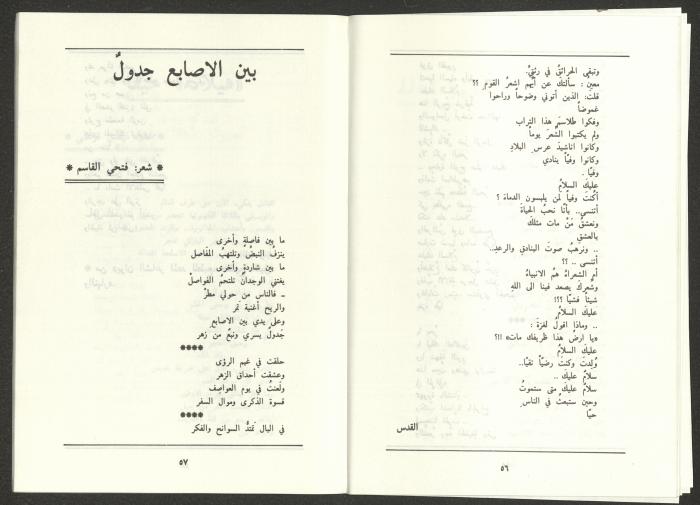 وتبقى الحرائقُ في رئتيَّ.
معينُ : سألتك عن أيّهم اشعرُ القومِ ؟؟
قلتَ: الذين أتوني وضوحاً وراحوا
غموضاً
وفكوا طلاسمَ هذا التراب
ولم يكتبوا الشعرَ يوماً
وكانوا اناشيدَ عرسِ البلادِ
وكانوا وفيّاً ينادي
وفيّاً .
عليكَ السلامُ
أكُنتَ وفياً لمن يلبسون الدماءَ ؟
أتنسى.. بأنّا نحبُّ الحياةَ
ونعشقُ مَنْ مات مثلك
بالعشقِ
.. ونرهبُ صوتَ البنادقِ والرعدِ..
أتنسى .. ؟؟
أم الشعراءُ همُ الانبياءُ
وشعركَ يصعد فينا الى اللهِ
شيئاً فشيّا ؟؟!
عليكَ السلامُ
.. وماذا اقولُ لغزةَ :
«يا ارضُ هذا ظريفكِ مات» ؟!!
عليكَ السلامُ
وُلِدتَ وكنتَ رضيّاً نقيّا..
سلامٌ عليك ..
سلامٌ عليكَ متى ستموتُ
وحين ستبعثُ في الناسِ
حيّا
القدس
٥٦
بين الاصابع جدولٌ
* شعر: فتحي القاسم *
ما بين فاصلةٍ وأخرى
ينزفُ النبضُ وتلتهبُ المفاصل
ما بين شاردةٍ وأخرى
يغتني الوجدانُ تلتحمُ الفواصلْ
ـ فالناس من حولي مطرْ
والريح أغنية تمر
وعلى يدي بين الاصابع
جَدولٌ يسري ونبعٌ من زهر
****
حلقت في غيم الرؤى
وعشقت أحداق الزهر
ولعنتُ في يوم العواصِف
قسوة الذكرى وموال السفر
****
في البال تَمتدُّ السوانح والفكر
٥٧